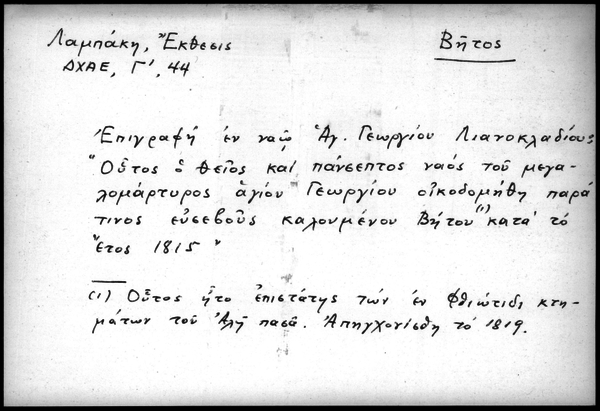 Λαμπάκη, Ἔκθεσις
ΔΧΑΕ, Γ', 44
Βῆτος
Ἐπιγραφή ἐν ναῷ Ἁγ. Γεωργίου Λιανοκλαδίου:
"Οὗτος ὁ θεῖος καί πάνσεπτος ναός τοῦ μεγα-
λομάρτυρος ἁγίου Γεωργίου οἰκοδομήθη παρά
τινος εὐσεβοῦς καλουμένου Βήτου(1) κατά τό
ἔτος 1815"
(1) Οὗτος ἦτο ἐπιστάτης τῶν ἐν Φθιώτιδι κτη-
μάτων τοῦ Ἀλῆ πασᾶ. Ἀπηγχονίσθη τό 1819.